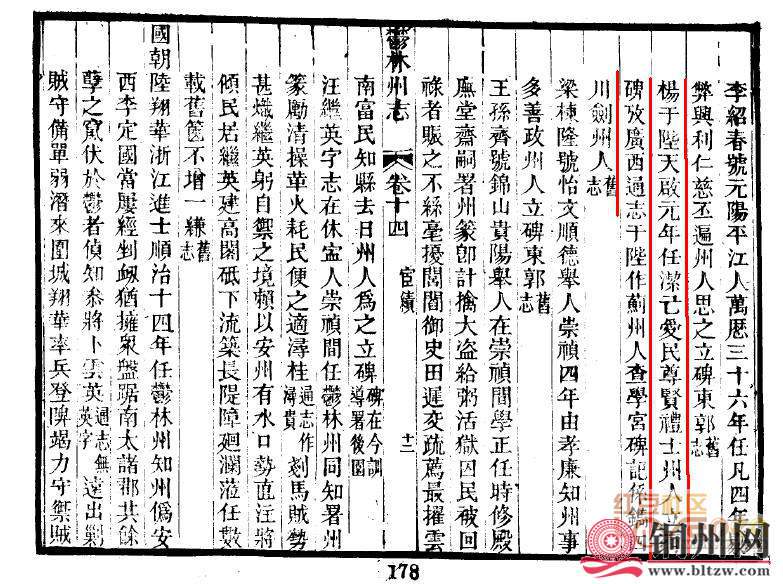 李紹春號元陽平江人萬厯三十六年任凡四年
弊興利仁慈丕遍州人思之立碑東郭舊志
楊于陛天啟元年任潔己愛民尊賢禮士州人
碑攷廣西通志于陛作薊州人查學宮碑記係
川劍州人舊志
梁棟隆號怡文順德舉人崇禎四年由孝廉知州事
多善政州人立碑東郭舊志
王孫齊號錦山貴陽舉人在崇禎間學正任時修殿
廡堂齋嗣署州篆卽計擒大盜給粥活獄囚民被回
祿者賑之不絲毫擾閭閻御史田遲変疏薦最擢雲
鬱林州志 卷十四 宦績 十二
南富民知縣去日州人爲之立碑碑在今訓導署後園
汪繼英字志在休寍人崇禎間任鬱林州同知署州
篆勵清操革火耗民便之適潯桂通志作潯貴剗馬賊勢
甚熾繼英躬自禦之境賴以安州有水口勢直注將
傾民居繼英建高閣砥下流築長隄障廻瀾蒞任數
載舊篋不增一縑舊志
國朝陸翔華浙江進士順治十四年任鬱林州知州偽安
西李定國當屢經剉衂猶擁衆盤踞南太諸郡其餘
孽之竄伏於鬱者偵知叅將卜雲英通志無英字遠出剿
賊守備單弱潛來圍城翔華率兵登陴竭力守禦賊
178
红豆社区
铜州网
www.bltzw.com